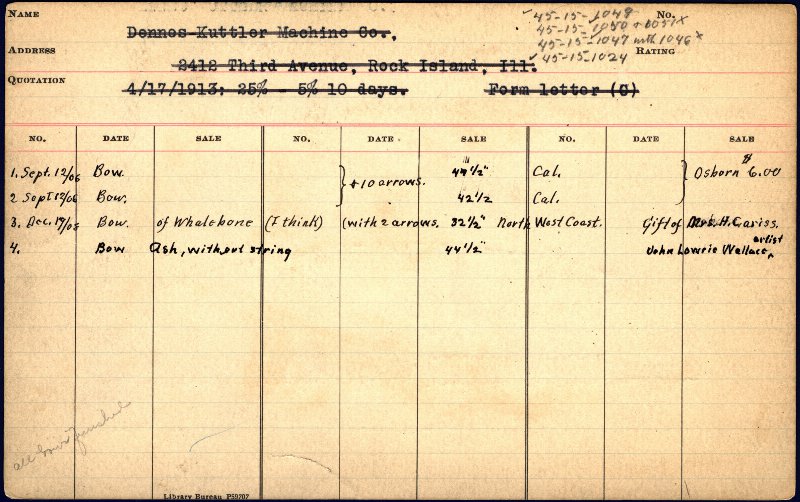 NAME
No.
45-15-1049
Dennos-Kuttler Machine Co.,
45-15-1050 + 1051x
45-15-1047 with 1046x
ADDRESS
RATING
2412 Third Avenue, Rock Island, Ill.
45-15-1024
QUOTATION
4/17/1913; 25% - 5% 10 days. Form letter (C)
NO. DATE SALE NO. DATE SALE NO. DATE SALE
1. Sept. 12/06 Bow. 44 1/2" Cal. Osborn $6.00
+ 10 arrows.
2 Sept 12/06 Bow. 42 1/2 Cal.
3. Dec. 17/08 Bow. of Whalebone (I think) (with 2 arrows. 32 1/2" North West Coast. Gift of Mrs. H. Cariss.
4. Bow Ash, without string 44 1/2" John Lowrie Wallace, artist
all
Library Bureau P59207